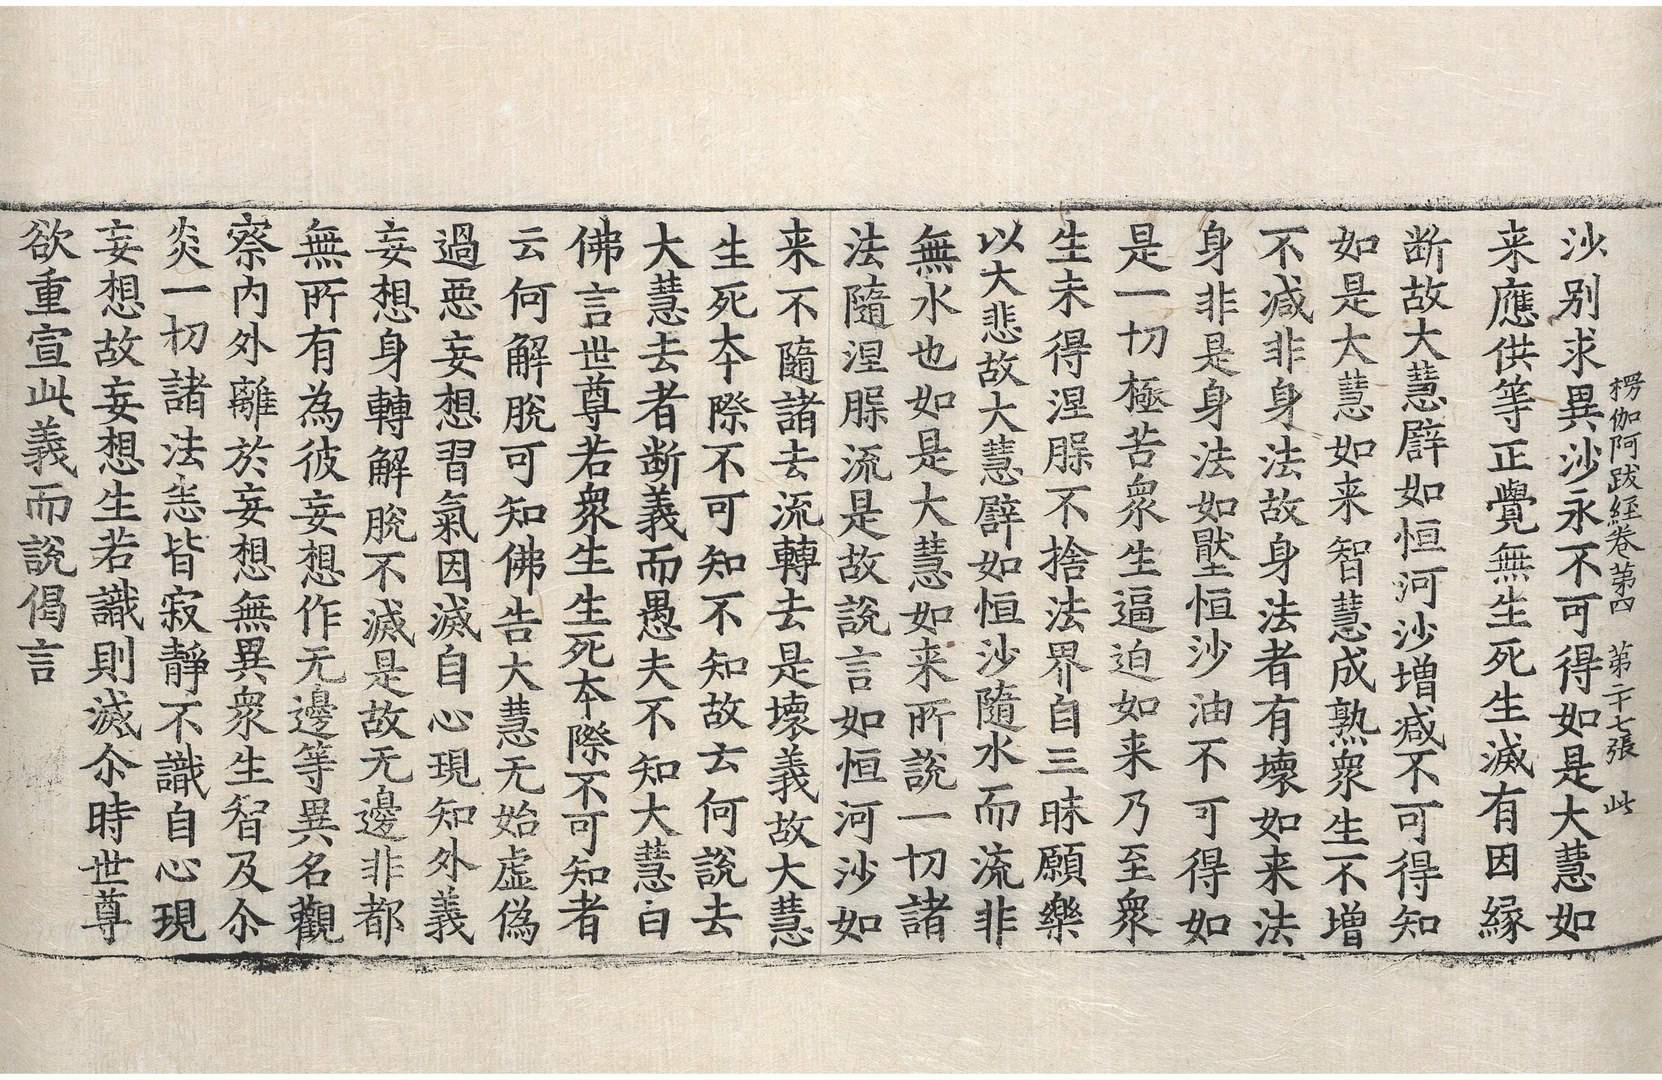 楞伽阿跋經卷第四　第二十七張　此
沙別求異沙永不可得如是大慧如
来應供等正覺無生死生滅有因緣
断故大慧譬如恒河沙增减不可得知
如是大慧如来智慧成熟衆生不增
不减非身法故身法者有壞如来法
身非是身法如壓恒沙油不可得如
是一切極苦衆生逼迫如来乃至衆
生未得涅槃不捨法界自三昧願樂
以大悲故大慧譬如恒沙隨水而流非
無水也如是大慧如来所說一切諸
法隨涅槃流是故說言如恒河沙如
来不隨諸去流轉去是壞義故大慧
生死夲際不可知不知故云何說去
大慧去者断義而愚夫不知大慧白
佛言世尊若衆生生死夲際不可知者
云何解脫可知佛告大慧无始虛偽
過惡妄想習氣因滅自心現知外義
妄想身轉解脫不滅是故无邊非都
無所有為彼妄想作无邊等異名觀
察内外離於妄想無異衆生智及尒
炎一切諸法悉皆寂靜不識自心現
妄想故妄想生若識則滅尒時世尊
欲重宣此義而說偈言